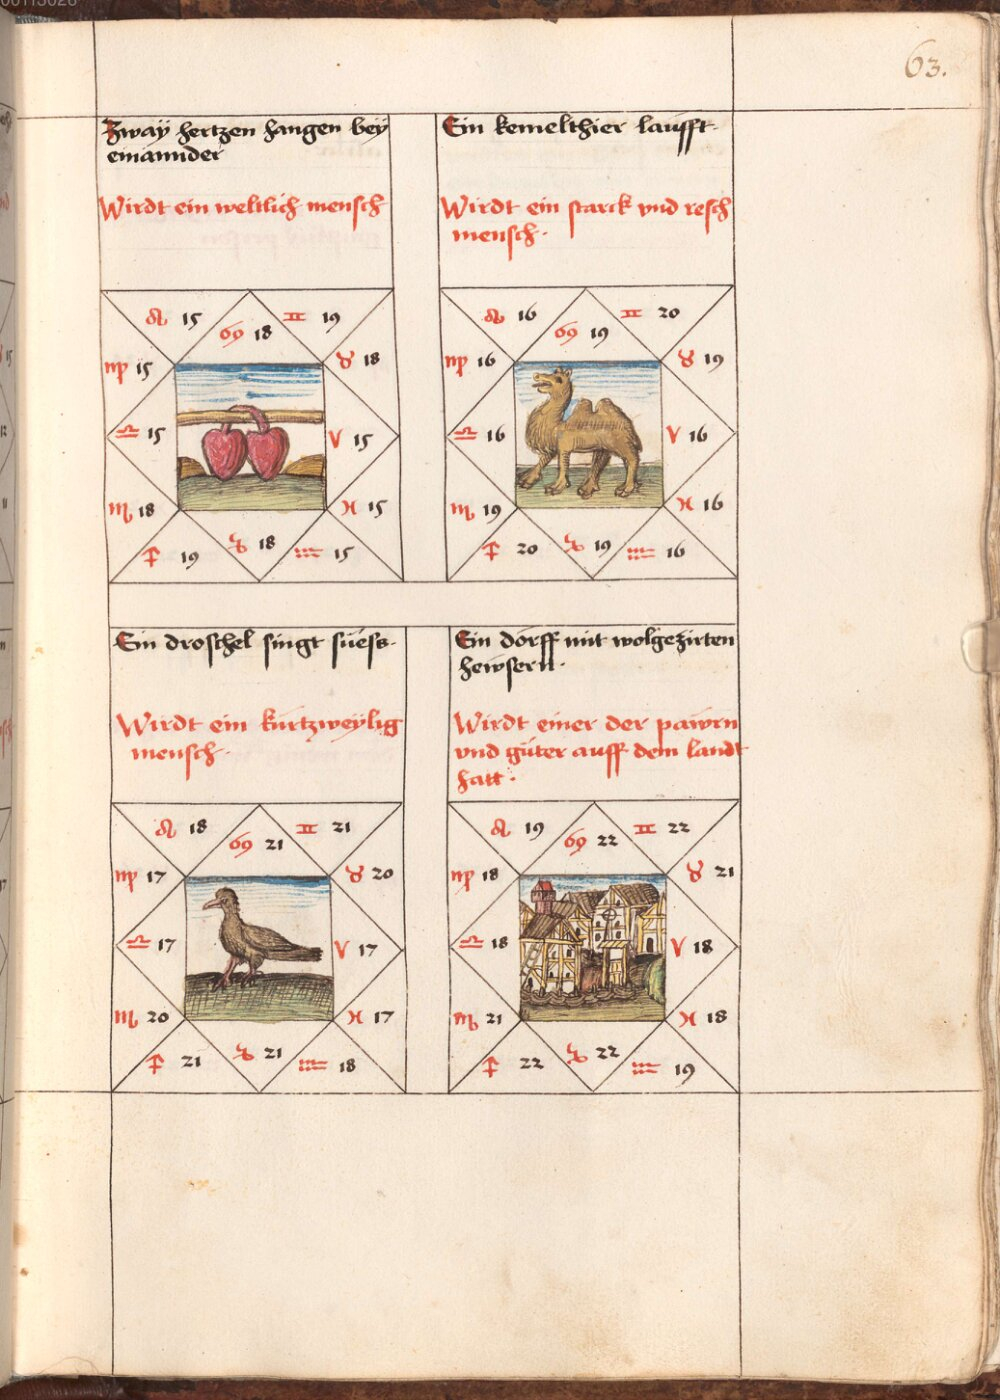 63.
Zway hertzen hangen bey
einannder
Wirdt ein weltlich mensch
♌ 15 ♋ 18 ♊ 19
♍ 15 ♉ 18
♎ 15 ♈ 15
♏ 18 ♓ 15
♐ 19 ♑ 18 ♒ 15
Ein kemelthier laufft.
Wirdt ein starck vnd resch
mensch.
♌ 16 ♋ 19 ♊ 20
♍ 16 ♉ 19
♎ 16 ♈ 16
♏ 19 ♓ 16
♐ 20 ♑ 19 ♒ 16
Ein droschel singt süess.
Wirdt ein kurtzweÿlig
mensch.
♌ 18 ♋ 21 ♊ 21
♍ 17 ♉ 20
♎ 17 ♈ 17
♏ 20 ♓ 17
♐ 21 ♑ 21 ♒ 18
Ein dorff mit wolgezirten
hewsern.
Wirdt einer der pawrn
vnd güter auff dem landt
hatt.
♌ 19 ♋ 22 ♊ 22
♍ 18 ♉ 21
♎ 18 ♈ 18
♏ 21 ♓ 18
♐ 22 ♑ 22 ♒ 19